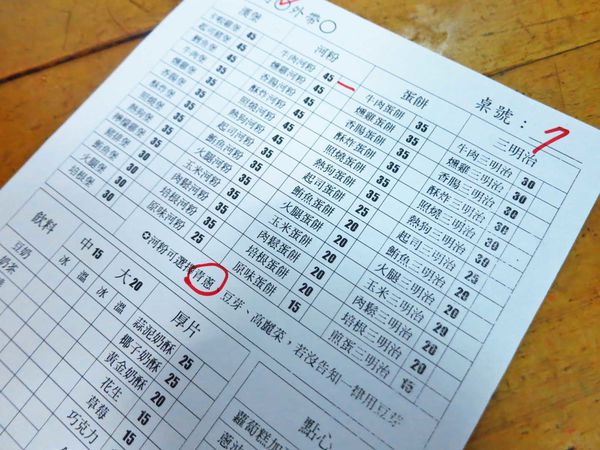 外帶
桌號：7
漢堡
河粉
牛肉河粉 45
燻雞河粉 45
香腸河粉 45
酥炸河粉 45
照燒河粉 45
熱狗河粉 45
起司河粉 35
鮪魚河粉 35
火腿河粉 35
玉米河粉 35
肉鬆河粉 35
培根河粉 35
原味河粉 25
蛋餅
牛肉蛋餅 35
燻雞蛋餅 35
香腸蛋餅 35
酥炸蛋餅 35
照燒蛋餅 35
熱狗蛋餅 35
起司蛋餅 25
鮪魚蛋餅 25
火腿蛋餅 20
玉米蛋餅 20
肉鬆蛋餅 20
培根蛋餅 20
原味蛋餅 15
三明治
牛肉三明治 30
燻雞三明治 30
香腸三明治 30
酥炸三明治 30
照燒三明治 30
熱狗三明治 30
起司三明治
鮪魚三明治
火腿三明治 20
玉米三明治 20
肉鬆三明治 20
培根三明治 20
煎蛋三明治 15
河粉可選擇青蔥、豆芽、高麗菜，若沒告知一律用豆芽
飲料
中15
大20
冰 溫 冰 溫
豆奶
奶茶
厚片
蒜泥奶酥 25
椰子奶酥 25
黃金奶酥 20
花生 20
草莓 20
巧克力
點心
蘿蔔糕加